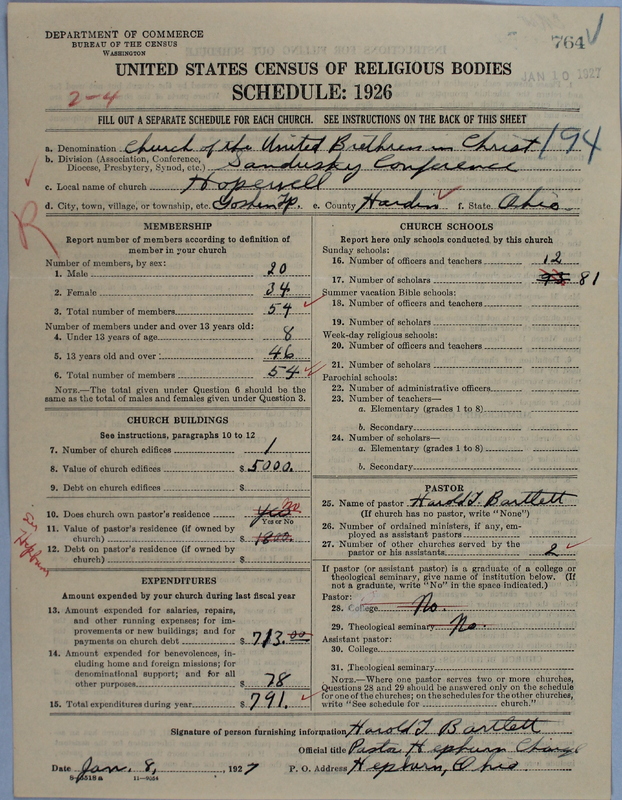 DEPARTMENT OF COMMERCE
BUREAU OF THE CENSUS
WASHINGTON
764
JAN 10 1927
UNITED STATES CENSUS OF RELIGIOUS BODIES
2-4
SCHEDULE: 1926
FILL OUT A SEPARATE SCHEDULE FOR EACH CHURCH. SEE INSTRUCTIONS ON THE BACK OF THIS SHEET
a. Denomination Church of the United Brethren in Christ 194
b. Division (Association, Conference, Diocese, Presbytery, Synod, etc.) Sandusky Conference
c. Local name of church Hopewell
d. City, town, village, or township, etc. Goshen Tp. e. County Hardin f. State Ohio
R
MEMBERSHIP
Report number of members according to definition of member in your church
Number of members, by sex:
1. Male 20
2. Female 34
3. Total number of members 54
Number of members under and over 13 years old:
4. Under 13 years of age 8
5. 13 years old and over: 46
6. Total number of members 54
NOTE.—The total given under Question 6 should be the same as the total of males and females given under Question 3.
CHURCH BUILDINGS
See instructions, paragraphs 10 to 12
7. Number of church edifices 1
8. Value of church edifices $ 5000.
9. Debt on church edifices $
10. Does church own pastor's residence Yes no
Yes or No
11. Value of pastor's residence (if owned by church) $ 1800.
12. Debt on pastor's residence (if owned by church) $
See Hepburn
EXPENDITURES
Amount expended by your church during last fiscal year
13. Amount expended for salaries, repairs, and other running expenses; for improvements or new buildings; and for payments on church debt $ 713.00
14. Amount expended for benevolences, including home and foreign missions; for denominational support; and for all other purposes $ 78
15. Total expenditures during year $ 791.
CHURCH SCHOOLS
Report here only schools conducted by this church
Sunday schools:
16. Number of officers and teachers 12
17. Number of scholars 93 81
Summer vacation Bible schools:
18. Number of officers and teachers
19. Number of scholars
Week-day religious schools:
20. Number of officers and teachers
21. Number of scholars
Parochial schools:
22. Number of administrative officers
23. Number of teachers—
a. Elementary (grades 1 to 8)
b. Secondary
24. Number of scholars—
a. Elementary (grades 1 to 8)
b. Secondary
PASTOR
25. Name of pastor Harold T. Bartlett
(If church has no pastor, write "None")
26. Number of ordained ministers, if any, employed as assistant pastors
27. Number of other churches served by the pastor or his assistants 2
If pastor (or assistant pastor) is a graduate of a college or theological seminary, give name of institution below. (If not a graduate, write "No" in the space indicated.)
Pastor:
28. College No
29. Theological seminary No.
Assistant pastor:
30. College
31. Theological seminary
NOTE.—Where one pastor serves two or more churches, Questions 28 and 29 should be answered only on the schedule for one of the churches; on the schedules for the other churches, write "See schedule for church."
Signature of person furnishing information Harold T. Bartlett
Official title Pastor Hepburn Charge
Date Jan. 8, 1927 P. O. Address Hepburn, Ohio.
11—9054